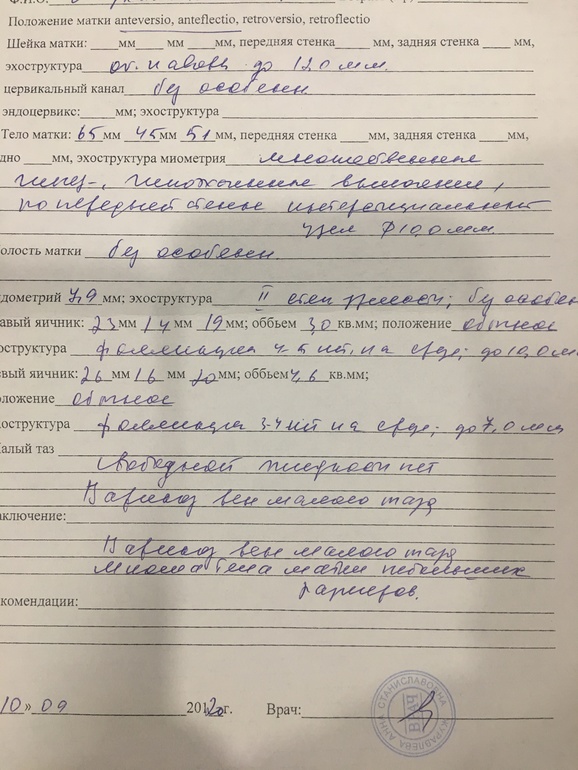 Положение матки anteversio, anteflectio, retroversio, retroflectio
Шейка матки: ____мм____ мм ____мм, передняя стенка____ мм, задняя стенка ____ мм,
эхоструктура до 12,0 мм.
цервикальный канал без особенн
эндоцервикс:____мм; эхоструктура
Тело матки: 65 мм 45 мм 51 мм, передняя стенка ____мм, задняя стенка ____мм,
дно ____ мм, эхоструктура миометрия множественные
гипер-, гипоэхогенные включения,
по передней стенке интерстициальный
узел ф10,0 мм.
олость матки без особенн.
дометрий 7,9 мм; эхоструктура II степ зрелости; без особен
равый яичник: 23 мм 14 мм 19 мм; оббьем 3,0 кв.мм; положение обычное
оструктура фолликула 4-5 шт. на срезе; до 10,0 м
евый яичник: 26 мм 16 мм 20 мм; оббьем 4,6 кв.мм;
оложение обычное
хоструктура фолликула 3-4 шт на срезе; до 7,0 мм
алый таз
Свободной жидкости нет
Варикоз вен малого таза
аключение:
Варикоз вен малого таза
Миома тела матки небольших
размеров.
комендации:
10» 09 201 г. Врач:
ЖУРАВЛЕВА АННА СТАНИСЛАВОВНА
ВРАЧ